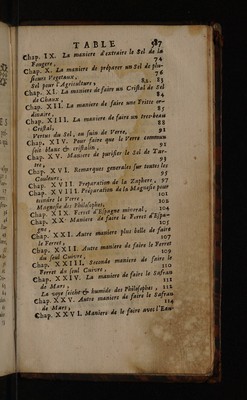 TABLE 587
Chap. IX. La maniere d'extraire le Sel de la
Fougere, 74
Chap. X. La maniere de préparer un Sel de plu-
sieurs Vegetaux, 76
Sel pour l'Agriculture, 82. 83
Chap. XI. La maniere de faire un Cristal de Sel
de Chaux, 84
Chap. XII. La maniere de faire une Fritte or-
dinaire, 85
Chap. XIII. La maniere de faire un tres-beau
Cristal, 88
Vertus du Sel, au suin de Verre, 91
Chap. XIV. Pour faire que le Verre commun
soit blanc & cristalin, 92
Chap. XV. Maniere de purifier le Sel de Tar-
tre, 93
Chap. XVI. Remarques generales sur toutes les
Couleurs, 95
Chap. XVII. Préparation de la Zaphere, 97
Chap. XVIII. Préparation de la Magnesie pour
teindre le Verre, 101
Magnesie des Philosophes, 102
Chap. XIX. Ferret d'Espagne mineral, 104
Chap. XX. Maniere de faire le Ferret d'Espa-
gne, 105
Chap. XXI. Autre maniere plus belle de faire
le Ferret, 107
Chap. XXII. Autre maniere de faire le Ferret
du seul Cuivre, 109
Chap. XXIII. Seconde maniere de faire le
Ferret du seul Cuivre, 110
Chap. XXIV. La maniere de faire le Saffran
de Mars, 111
La voye seiche & humide des Philosophes, 112
Chap. XXV. Autre maniere de faire le Saffran
de Mars, 114
Chap. XXVI. Maniere de le faire avec l'Eau-